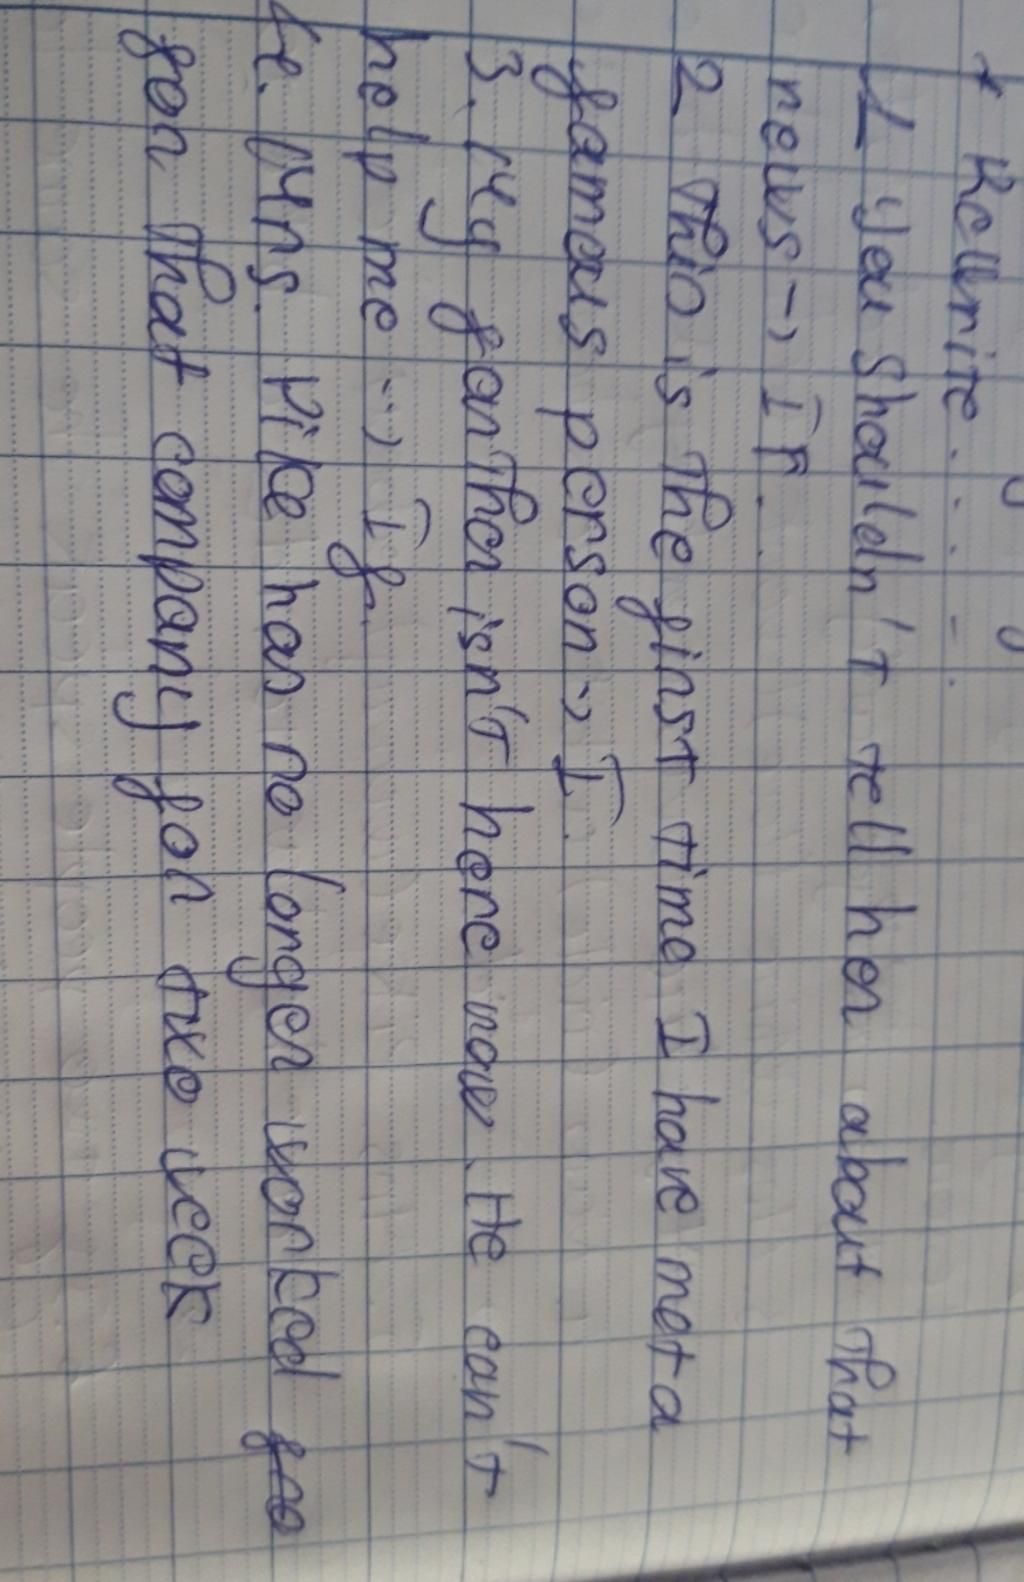 * Rewrite. . . - .
1 You shouldn't tell her about that
news → If .
2 This is the first time I have met a
famous person → I .
3. My father isn't here now. He can't
help me → If.
4. Mrs. Pike has no longer worked
for that company for two week